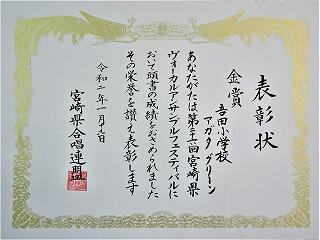 表彰状
金賞
吾田小学校
アガタグリーン
あなたがたは第三十一回宮崎県
ヴォーカルアンサンブルフェスティバルに
おいて頭書の成績をおさめられました
その栄誉を讃え表彰します
令和二年一月
宮崎県合唱連盟